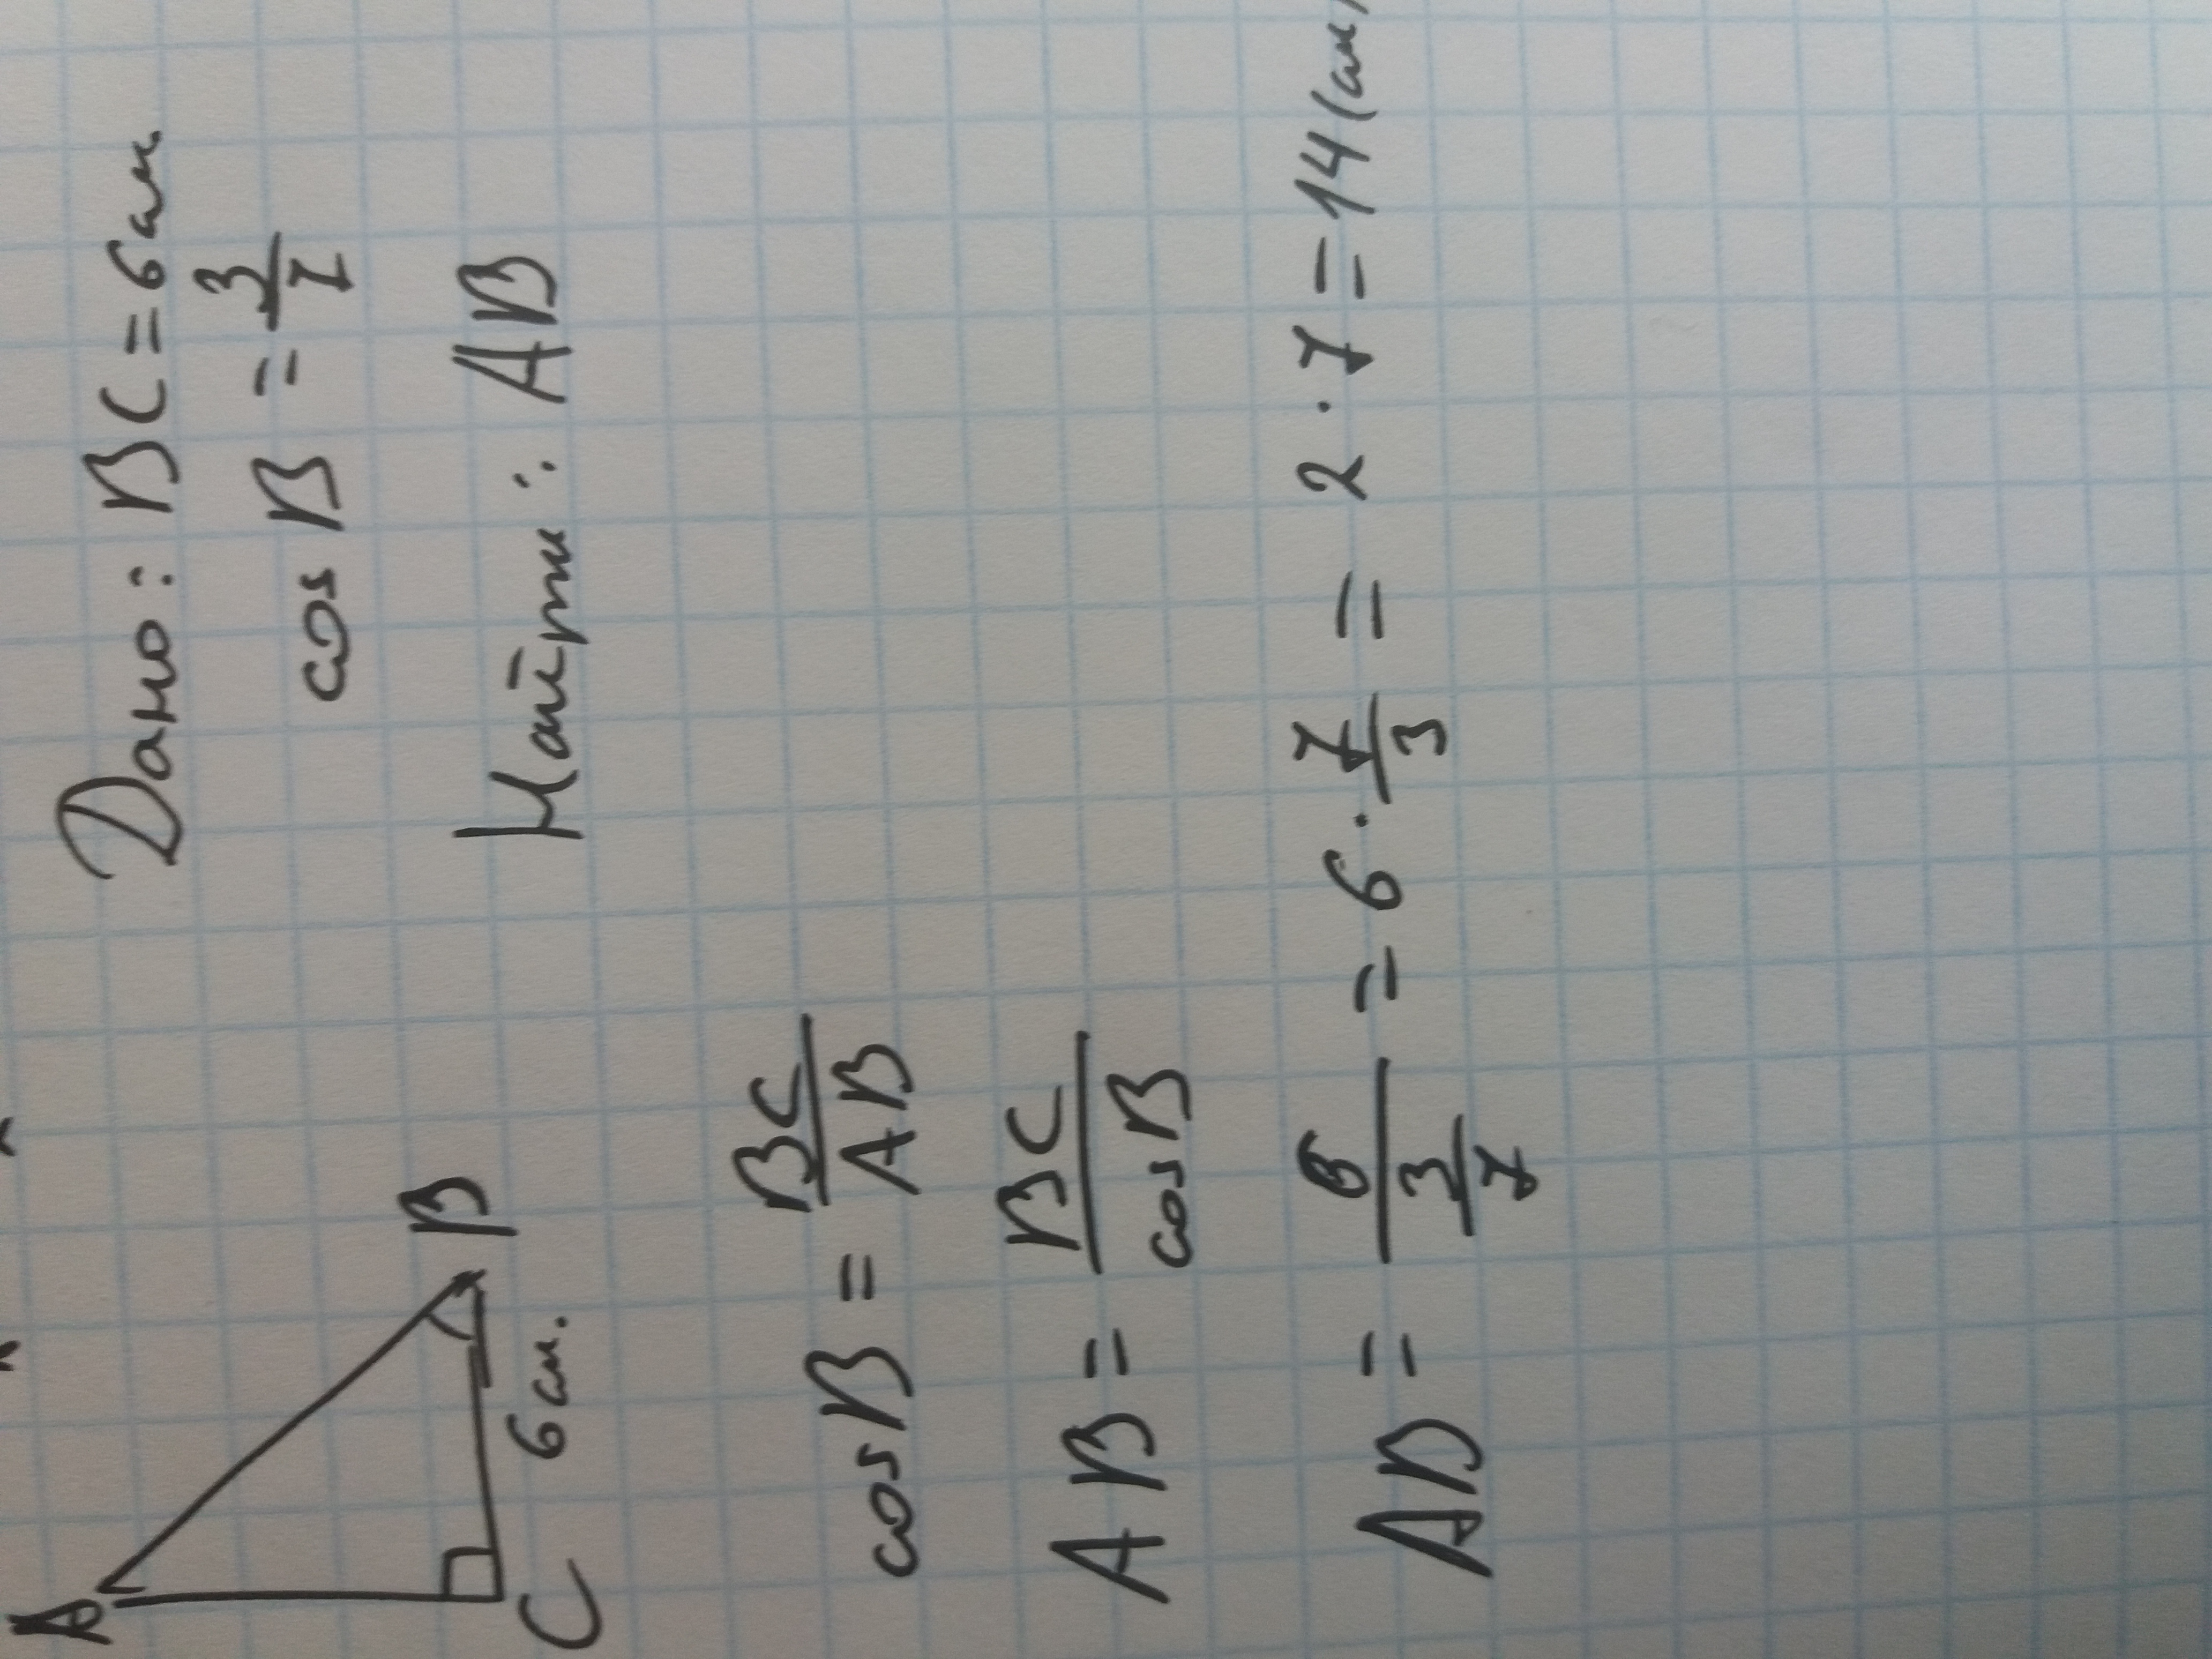 A
Дано: BC = 6 см.
cos B = 3/7
B
Найти: AB
C 6 см.
cos B = BC/AB
AB = BC/cos B
AB = 6/(3/7) = 6 · 7/3 = 2 · 7 = 14 (см)